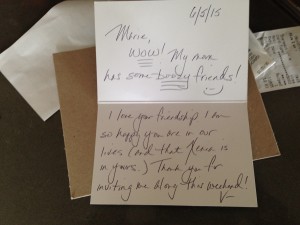 6/5/15
Maria,
WOW! My mom
has some body friends!
I love your friendship I am
so happy you are in our
lives (and that is
in yours.) Thank you for
inviting me along this weekend!
V-